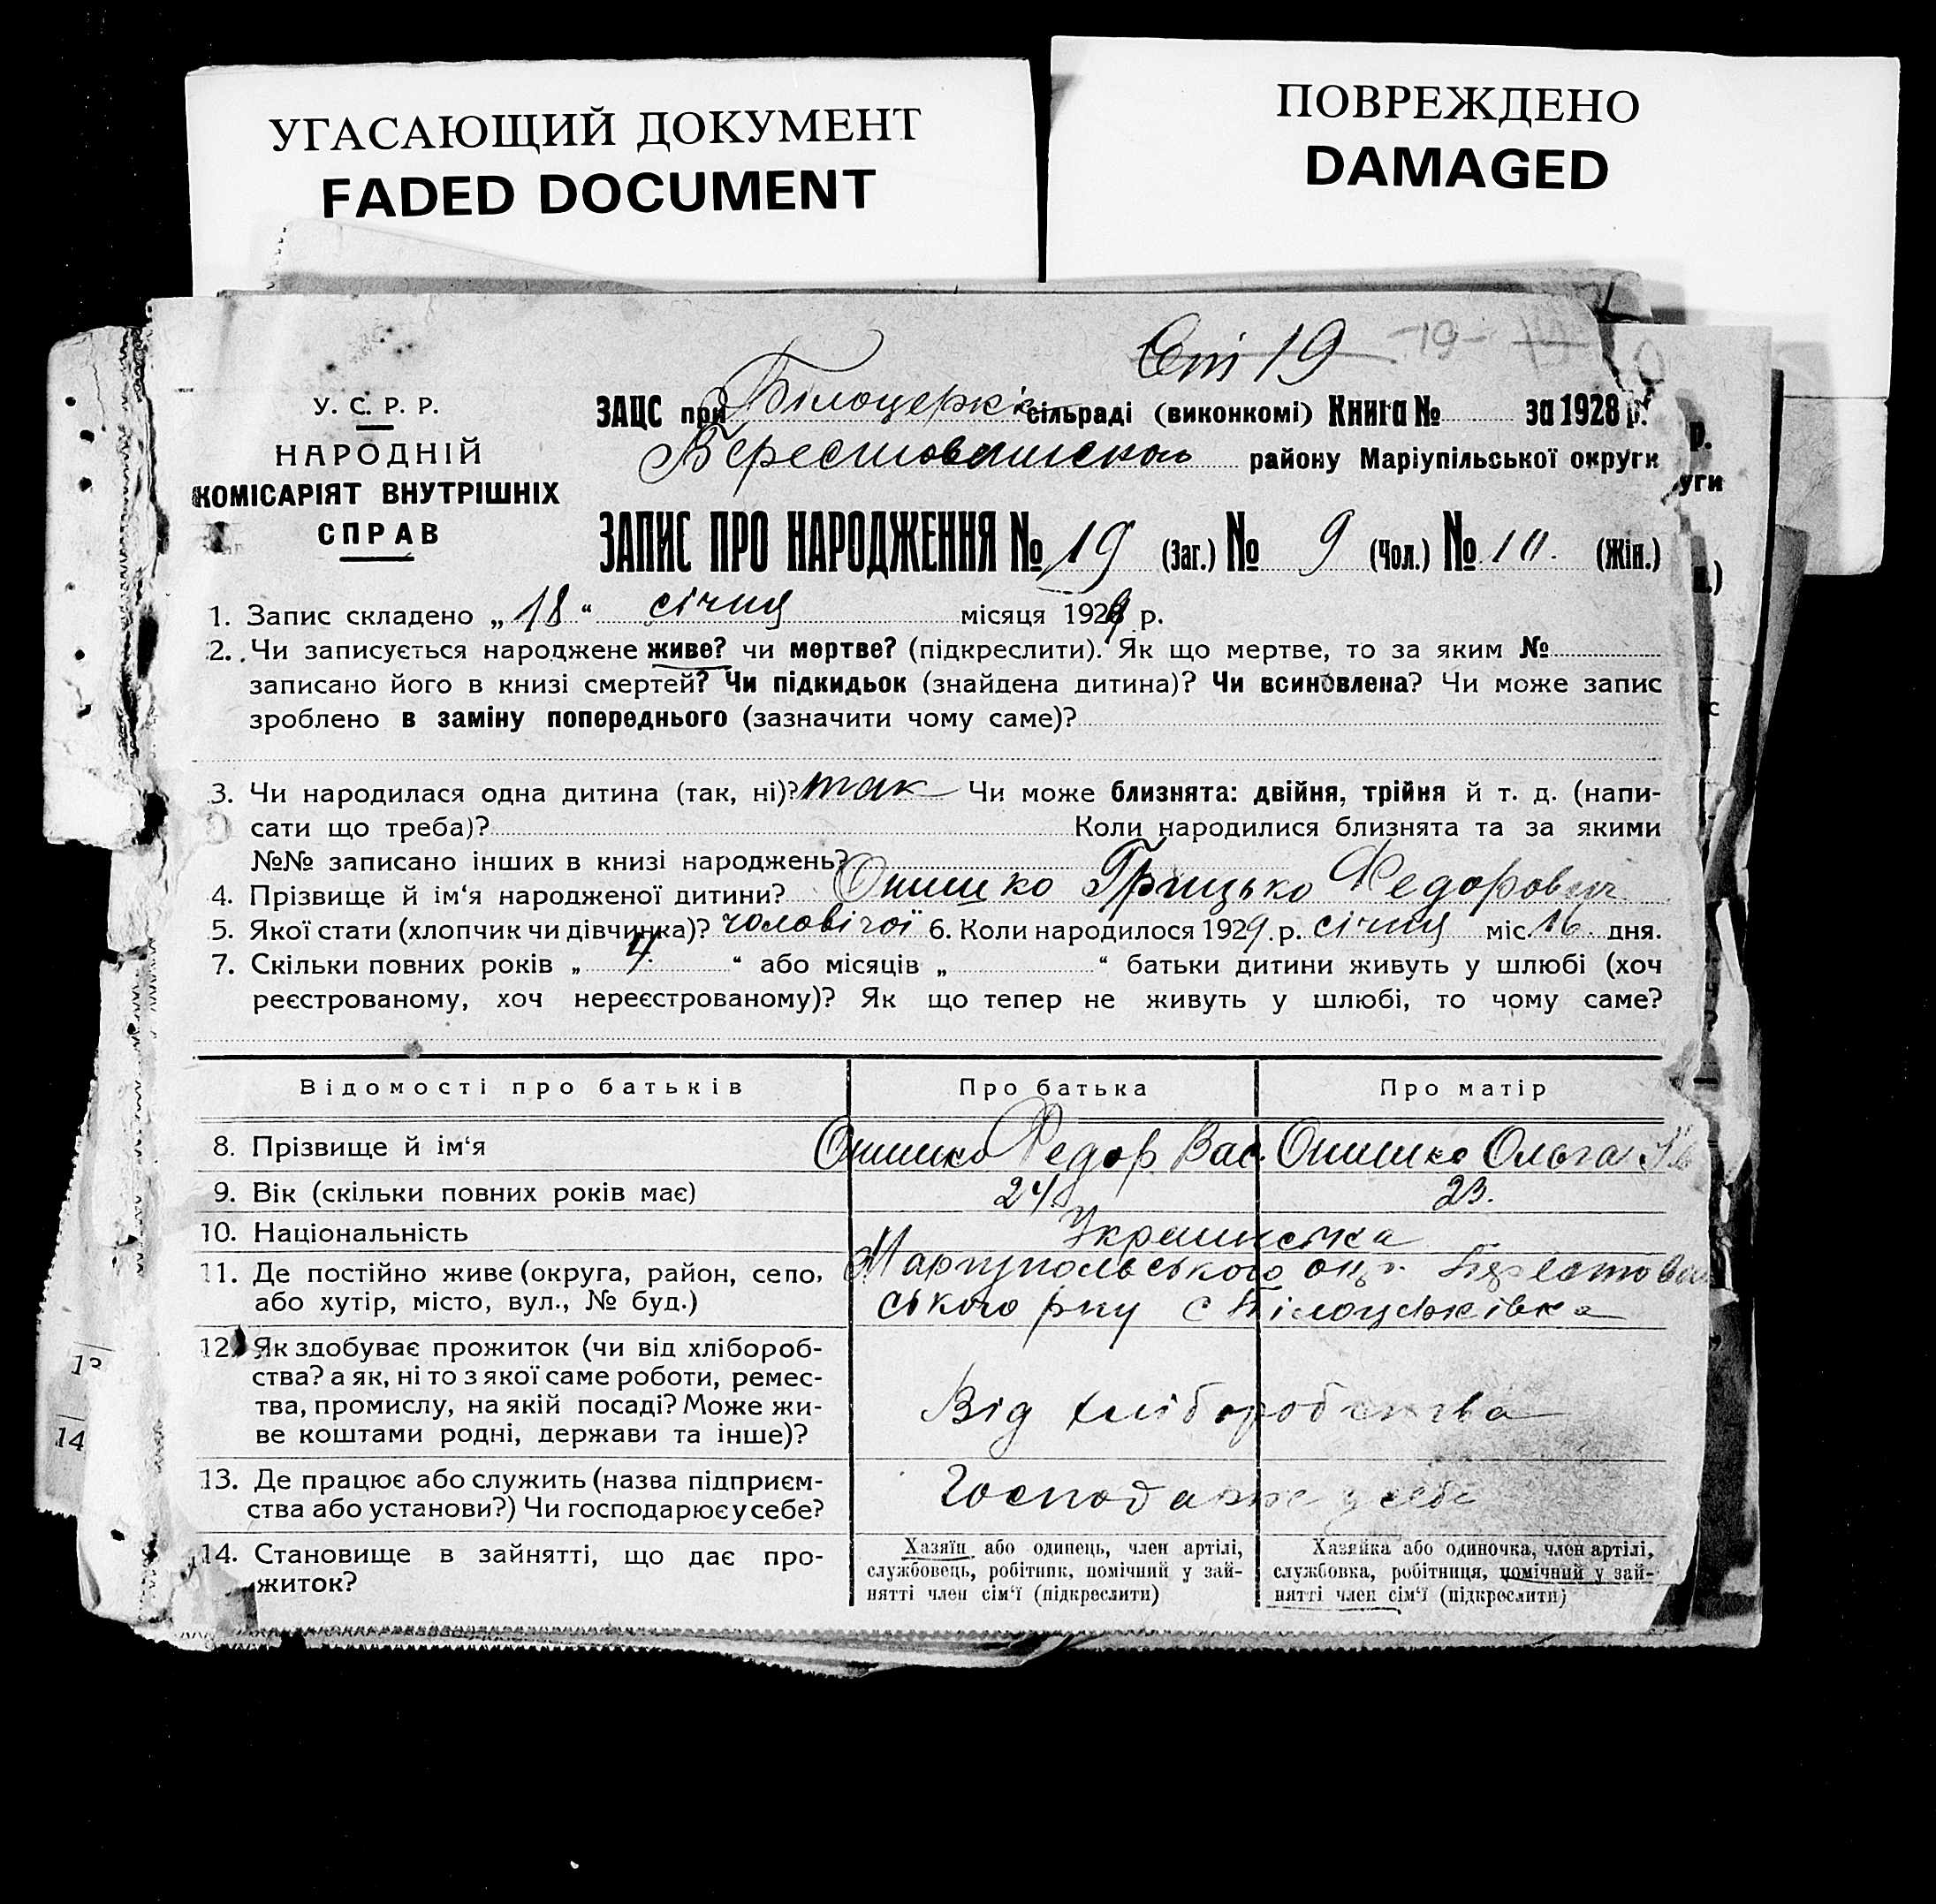 УГАСАЮЩИЙ ДОКУМЕНТ
FADED DOCUMENT
ПОВРЕЖДЕНО
DAMAGED
Ст 19 -19-
У. С. Р. Р.
НАРОДНІЙ
КОМІСАРІЯТ ВНУТРІШНІХ
СПРАВ
ЗАЦС при Білоцерків сільраді (виконкомі) Книга № за 1928 р.
району Маріупільської округи
ЗАПИС ПРО НАРОДЖЕННЯ № 19 (Заг.) № 9 (Чол.) № 10. (Жін.)
1. Запис складено „ 18 “ січня місяця 1929 р.
2. Чи записується народжене живе? чи мертве? (підкреслити). Як що мертве, то за яким №
записано його в книзі смертей? Чи підкидьок (знайдена дитина)? Чи всиновлена? Чи може запис
зроблено в заміну попереднього (зазначити чому саме)?
3. Чи народилася одна дитина (так, ні)? так Чи може близнята: двійня, трійня й т. д. (напи-
сати що треба)? Коли народилися близнята та за якими
№№ записано інших в книзі народжень?
4. Прізвище й ім‘я народженої дитини? Онишко Грицько Федорович
5. Якої стати (хлопчик чи дівчинка)? чоловічої 6. Коли народилося 1929 р. січня міс. 16 дня.
7. Скільки повних років „ 4. “ або місяців „ “ батьки дитини живуть у шлюбі (хоч
реєстрованому, хоч нереєстрованому)? Як що тепер не живуть у шлюбі, то чому саме?
Відомості про батьків Про батька Про матір
8. Прізвище й ім‘я Онишко Федор Вас. Онишко Ольга
9. Вік (скільки повних років має) 24 23.
10. Національність Украинська
11. Де постійно живе (округа, район, село, Марiупольського окр. Берестован
або хутір, місто, вул., № буд.) ського рну с Білоцерківка
12. Як здобуває прожиток (чи від хлібороб-
ства? а як, ні то з якої саме роботи, ремес-
тва, промислу, на якій посаді? Може жи- Від хліборобства
ве коштами родні, держави та інше)?
13. Де працює або служить (назва підприєм- Господарює у себе
ства або установи?) Чи господарює у себе?
14. Становище в зайнятті, що дає про-
житок?
Хазяїн або одинець, член артілі,
службовець, робітник, помічний у зай-
нятті член сім‘ї (підкреслити)
Хазяйка або одиночка, член артілі,
службовка, робітниця, помічний у зай-
нятті член сім‘ї (підкреслити)
р.
уги
14